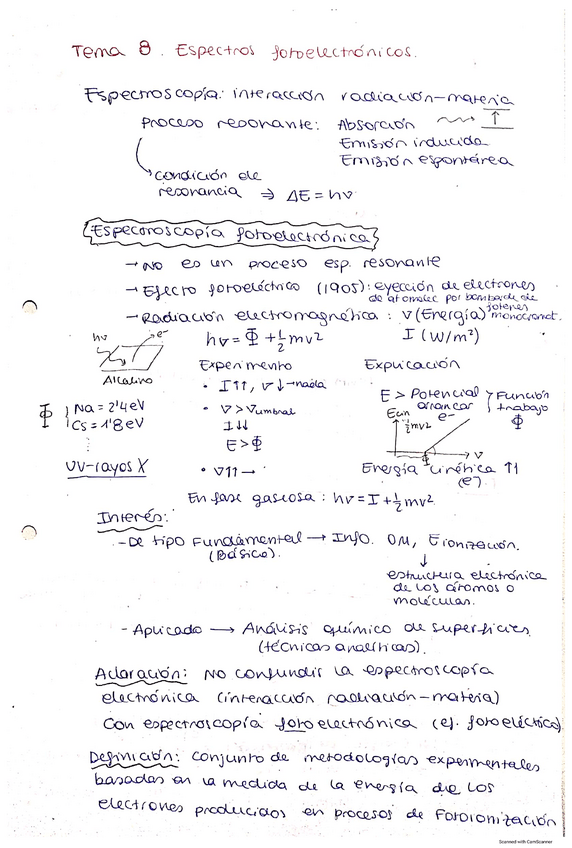 Tema 8. Espectros fotoelectrónicos.
Espectroscopía: interacción radiación-materia
Proceso resonante: Absorción
Emisión inducida
Emisión espontánea
condición de
resonancia ⇒ ΔE = hν
Especoroscopía fotoelectrónica
→ No es un proceso esp. resonante
→ Efecto fotoeléctrico (1905): eyección de electrones
de átomos por bombardeo de
fotones
→ Radiación electromagnética: ν (Energía) monocromat.
hν = Φ + ½mv² I (W/m²)
hν e⁻
Alcalino
Experimento Explicación
• I↑↑, ν↓ → nada
E > Potencial arrancar e⁻ } Función trabajo Φ
Φ { Na = 2'4 eV
Cs = 1'8 eV
⋮
• ν > νumbral
I↓↓
E > Φ
Ecin
½mv²
Φ ν
UV-rayos X
• ν↑↑ → Energía cinética ↑↑
(e⁻).
En fase gaseosa: hν = I + ½mv²
Interés:
- De tipo Fundamental → Info. OM, Eionización.
(Básico).
↓
estructura electrónica
de los átomos o
moléculas.
- Aplicado → Análisis químico de superficies.
(técnicas analíticas).
Aclaración: No confundir la espectroscopía
electrónica (interacción radiación-materia)
con espectroscopía fotoelectrónica (ef. fotoeléctrico)
Definición: conjunto de metodologías experimentales
basadas en la medida de la energía de los
electrones producidos en procesos de fotoionización
Scanned with CamScanner